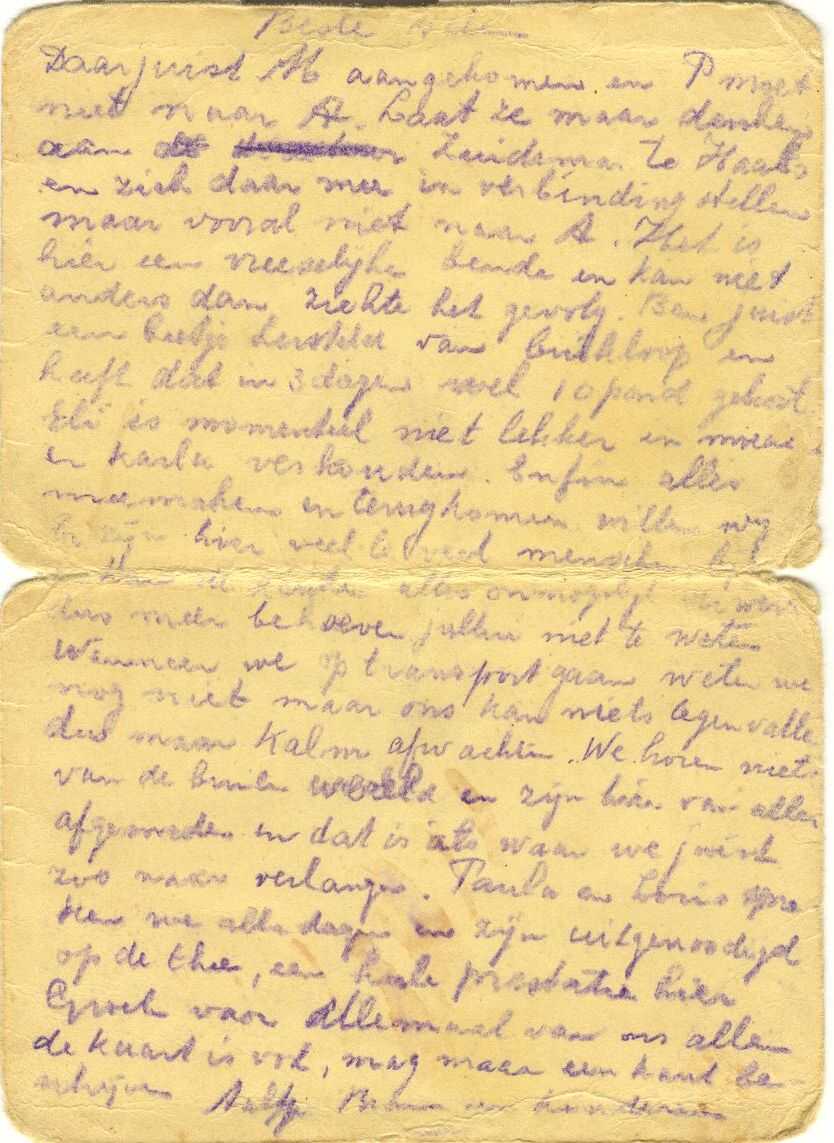 Beste
Daarjuist M aangekomen en P moet
niet naar A. Laat ze maar denken
aan Zuidema te
en zich daar mee in verbinding stellen
maar vooral niet naar A. Het is
hier een vreeselijke bende en kan niet
anders dan ziekte het gevolg. Ben juist
een beetje hersteld van buikloop en
heeft dat in 3 dagen wel 10 pond gekost.
Eli is momenteel niet lekker en moe
en Karla verkouden. Enfin alles
meemaken en terugkomen willen wij
Er zijn hier veel te veel menschen bij
alles onmogelijk
dus meer behoeven jullie niet te weten
Wanneer we op transport gaan weten we
nog niet maar ons kan niets tegenvalle
dus maar Kalm afwachten. We horen niets
van de buiten wereld en zijn hier van alles
afgesneden en dat is iets waar we juist
zoo naar verlangen. Paula en Loris spre
ken we alle dagen en zijn uitgenoodigd
op de thee, een heele prestatie hier
Groet voor allemaal van ons allen
de kaart is vol, mag maar een kant be-
schrijven Aaltje Bram en kinderen